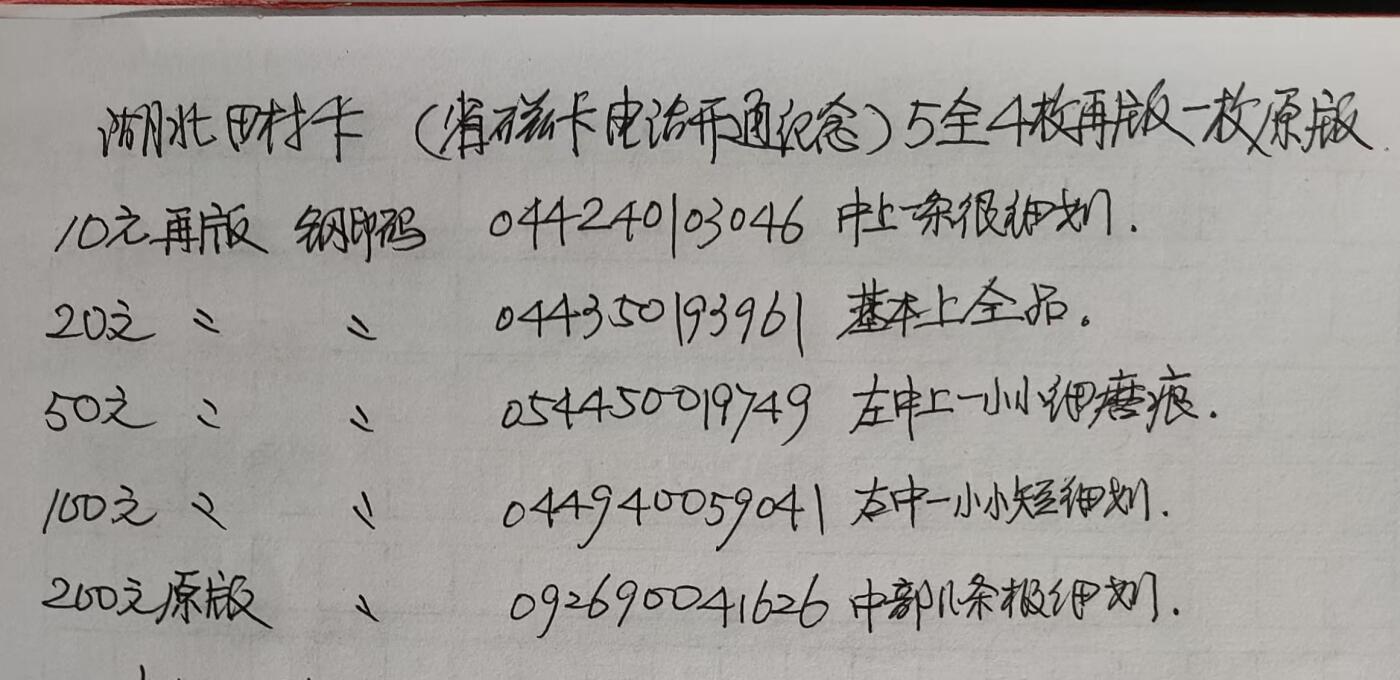 湖北田村卡（省磁卡电话开通纪念）5全4枚再版一枚原版.
10元再版 钢印码 044240103046 中上一条很细划.
20元 〃 〃 044350193961 基本上全品。
50元 〃 〃 054450019749 左中上一小小细磨痕.
100元 〃 〃 044940059041 右中一小小短细划.
200元原版 〃 092690041626 中部几条极细划.